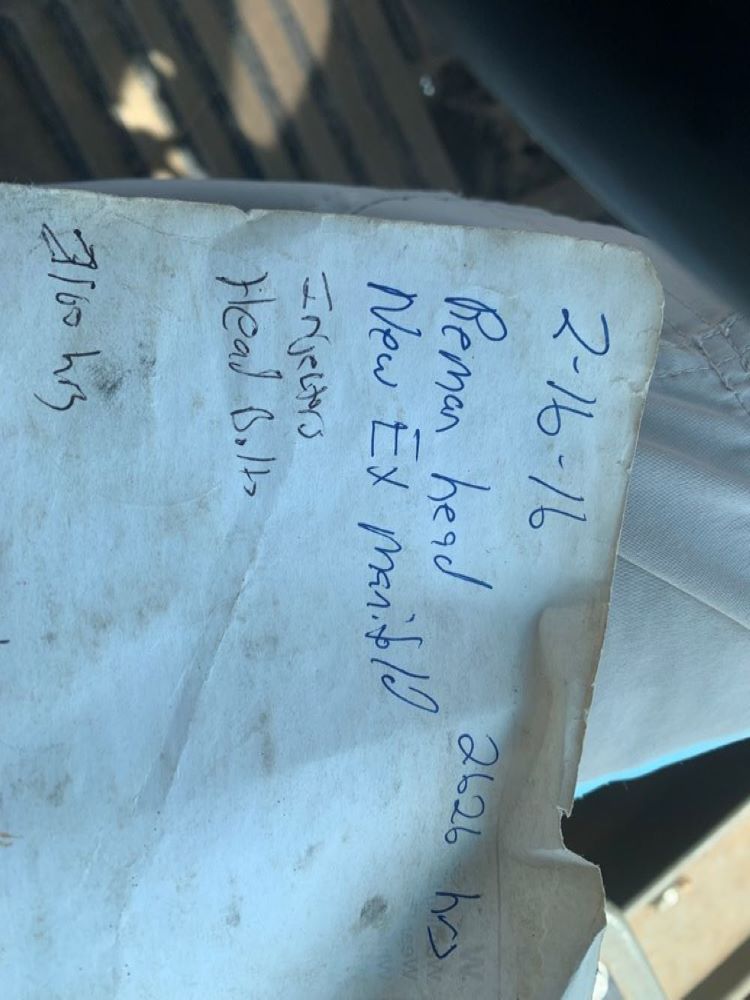 2-16-16
Reman head 2626 hrs
New Ex manifold
Injectors
Head Bolts
3160 hrs